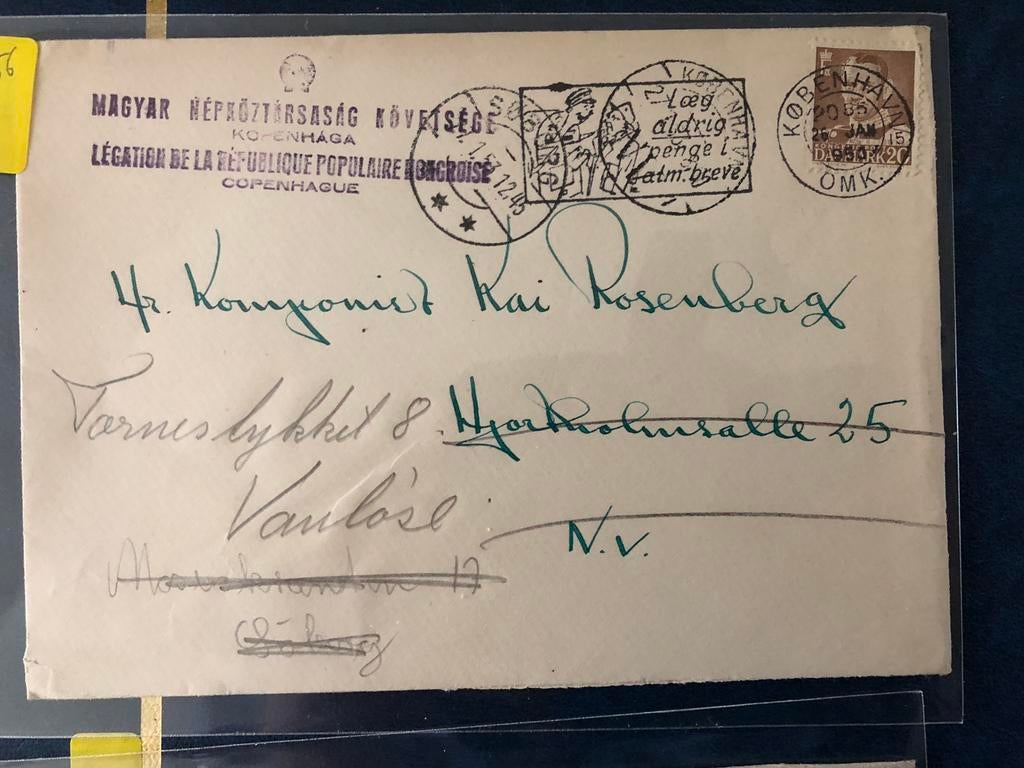 56
MAGYAR NÉPKÖZTÁRSASÁG KÖVETSÉGE
KOPENHÁGA
LÉGATION DE LA RÉPUBLIQUE POPULAIRE HONGROISE
COPENHAGUE
SØBORG
12.45
Læg
aldrig
penge i
alm. breve
KØBENHAVN
KØBENHAVN
26 JAN
1950
15
OMK.
DANMARK 20
Hr. Komponist Kai Rosenberg
Tornestykket 8. Hjortholmsalle 25
Vanlöse
N.V.
17
Söborg